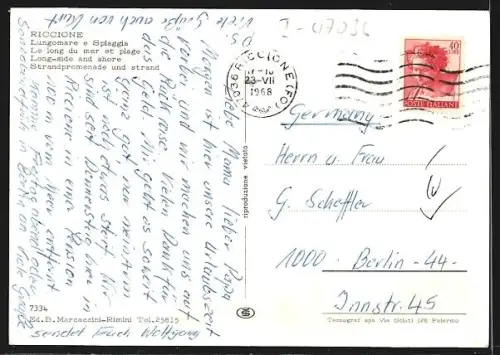 I-47036
RICCIONE
Lungomare e Spiaggia
Le long du mer et plage
Long-side and shore
Strandpromenade und strand
47036 RICCIONE (FO)
17-18
23-VII
1968
40
POSTE ITALIANE
P.S.
viele Grüße auch von Kurt
Liebe Mama, lieber Papa
Morgen ist hier unsere Urlaubszeit
vorbei und wir machen uns auf
die Rückreise. Vielen Dank für
das
Mir geht es soweit
ganz gut, nur
ist
etwas stark. Wir
sind seit Donnerstag hier in
Riccione in einer Pension
100 m vom Meer entfernt
Freitag abend oder
Sonnabend
in Berlin an. Viele Grüße
sendet Euch Wolfgang
Germany
Herrn u. Frau
G. Scheffler
1000 Berlin -44-
Innstr. 45
riproduzione vietata
7334
Ed. D. Marcaccini-Rimini Tel. 25815
Tecnograf spa Via
Palermo